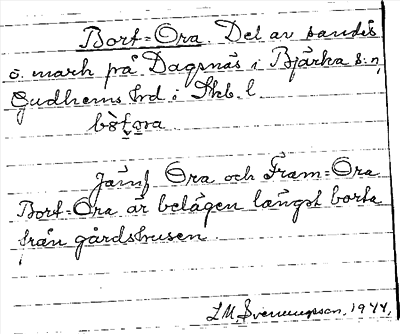 Bort=Ora. Del av samhäl
o. mark på Dagsnäs i Bjärka s:n,
Gudhems hrd i Skb. l.
bo̊t̬ora
Jämf Ora och Fram=Ora.
Bort=Ora är belägen längst borta
från gårdshusen.
L M Svenungsson, 1944,